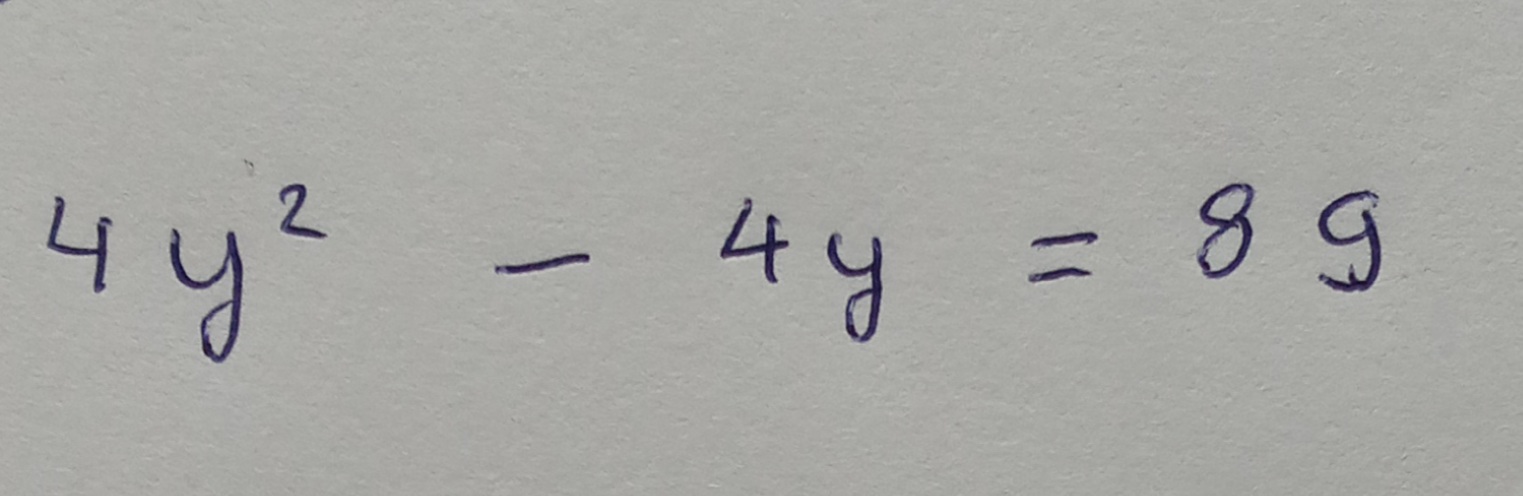 4y² - 4y = 89